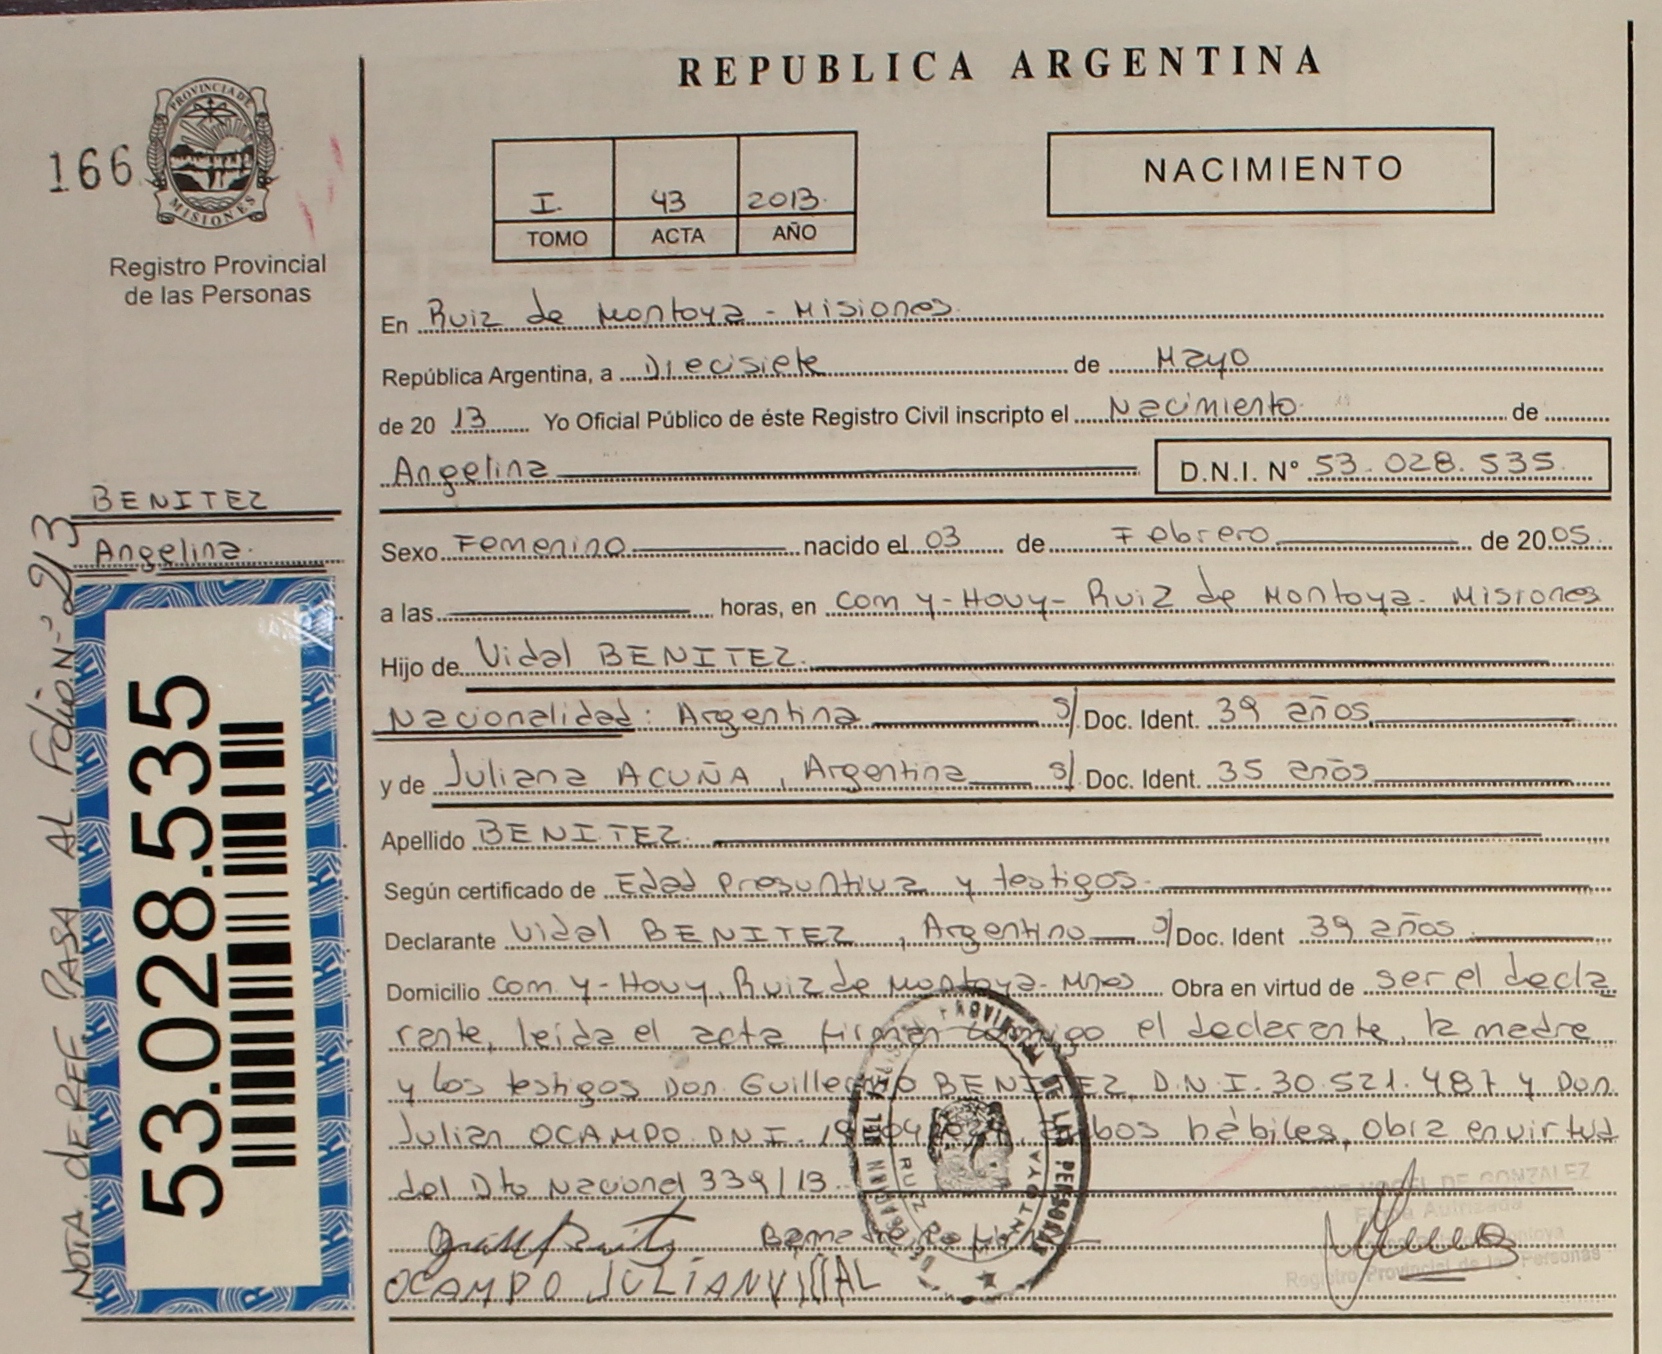 REPUBLICA ARGENTINA
166
PROVINCIA DE
MISIONES
Registro Provincial
de las Personas
I. 43 2013.
TOMO ACTA AÑO
NACIMIENTO
En Ruiz de Montoya - Misiones.
República Argentina, a Diecisiete de Mayo
de 20 13 Yo Oficial Público de éste Registro Civil inscripto el Nacimiento de
Angelina D.N.I. Nº 53.028.535.
BENITEZ
Angelina.
Sexo Femenino nacido el 03 de Febrero de 2005.
a las horas, en Com Y-Hovy- Ruiz de Montoya. Misiones
Hijo de Vidal BENITEZ.
Nacionalidad: Argentina s/ Doc. Ident. 39 años
y de Juliana ACUÑA, Argentina s/ Doc. Ident. 35 años
Apellido BENITEZ.
Según certificado de Edad Presuntiva y testigos.
Declarante Vidal BENITEZ, Argentino s/ Doc. Ident 39 años
Domicilio Com. Y-Hovy. Ruiz de Montoya- Mnes Obra en virtud de ser el decla
rante, leida el acta firman conmigo el declarante, la madre
y los testigos Don Guillermo BENITEZ, D.N.I. 30.521.487 y Don
Julian OCAMPO DNI. ambos hàbiles, obra en virtud
del Dto Nacional 339/13.
OCAMPO JULIAN
NOTA de REF PASA AL Folio Nº 213
53.028.535
DE GONZALEZ
Firma Autorizada
Registro Provincial de las Personas